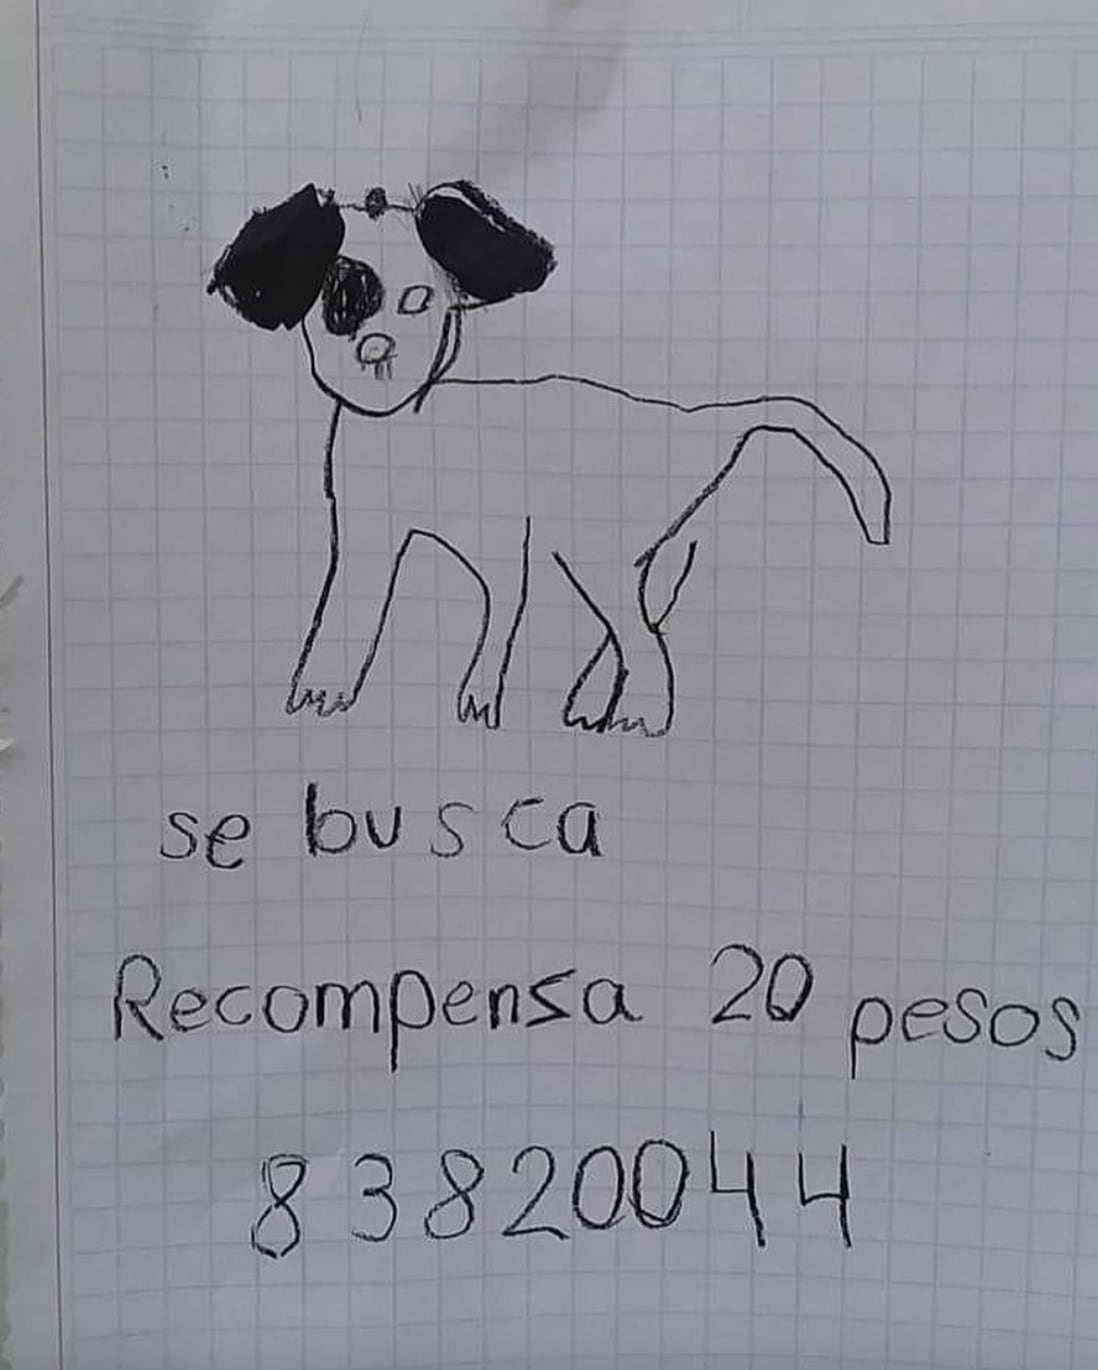 se busca
Recompensa 20 pesos
83820044